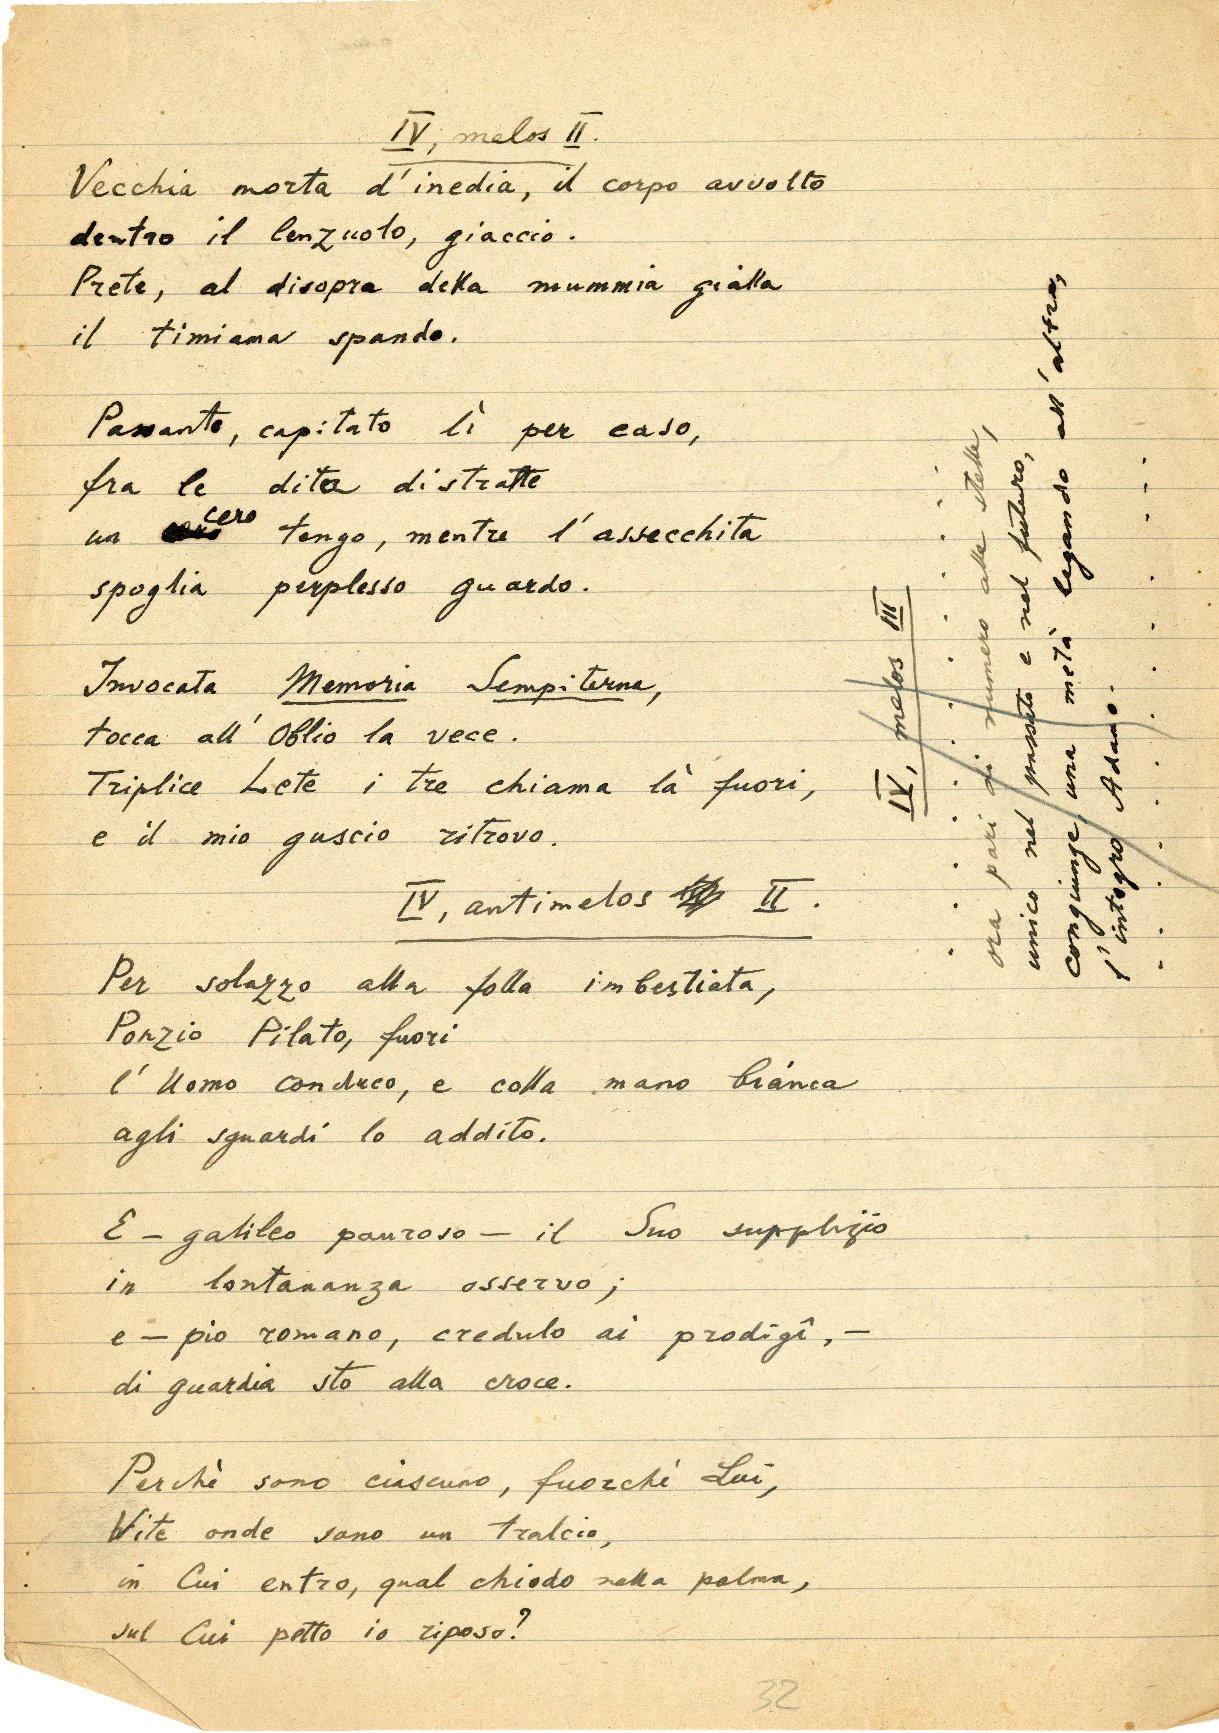 IV, melos II.
Vecchia morta d'inedia, il corpo avvolto
dentro il lenzuolo, giaccio.
Prete, al disopra della mummia gialla
il timiama spando.
Passante, capitato lì per caso,
fra le dita distratte
un cero tengo, mentre l'assecchita
spoglia perplesso guardo.
Invocata Memoria Sempiterna,
tocca all' Oblio la vece.
Triplice Lete i tre chiama là fuori,
e il mio guscio ritrovo.
IV, antimelos II.
Per solazzo alla folla imbestiata,
Ponzio Pilato, fuori
l'Uomo conduco, e colla mano bianca
agli sguardi lo addito.
E – galileo pauroso – il Suo supplizio
in lontananza osservo;
e – pio romano, credulo ai prodigî, –
di guardia sto alla croce.
Perchè sono ciascuno, fuorchè Lui,
Vite onde sono un tralcio,
in Cui entro, qual chiodo nella palma,
sul Cui petto io riposo?
IV, melos III
. . . . . . . . . .
ora pari di numero alle stelle,
unico nel passato e nel futuro,
congiunge, una metà legando all'altra,
l'integro Adamo.
. . . . . . . . . .
32